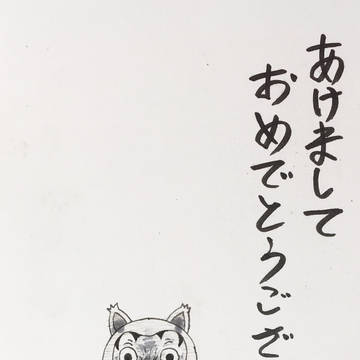 あけまして
おめでとうござ